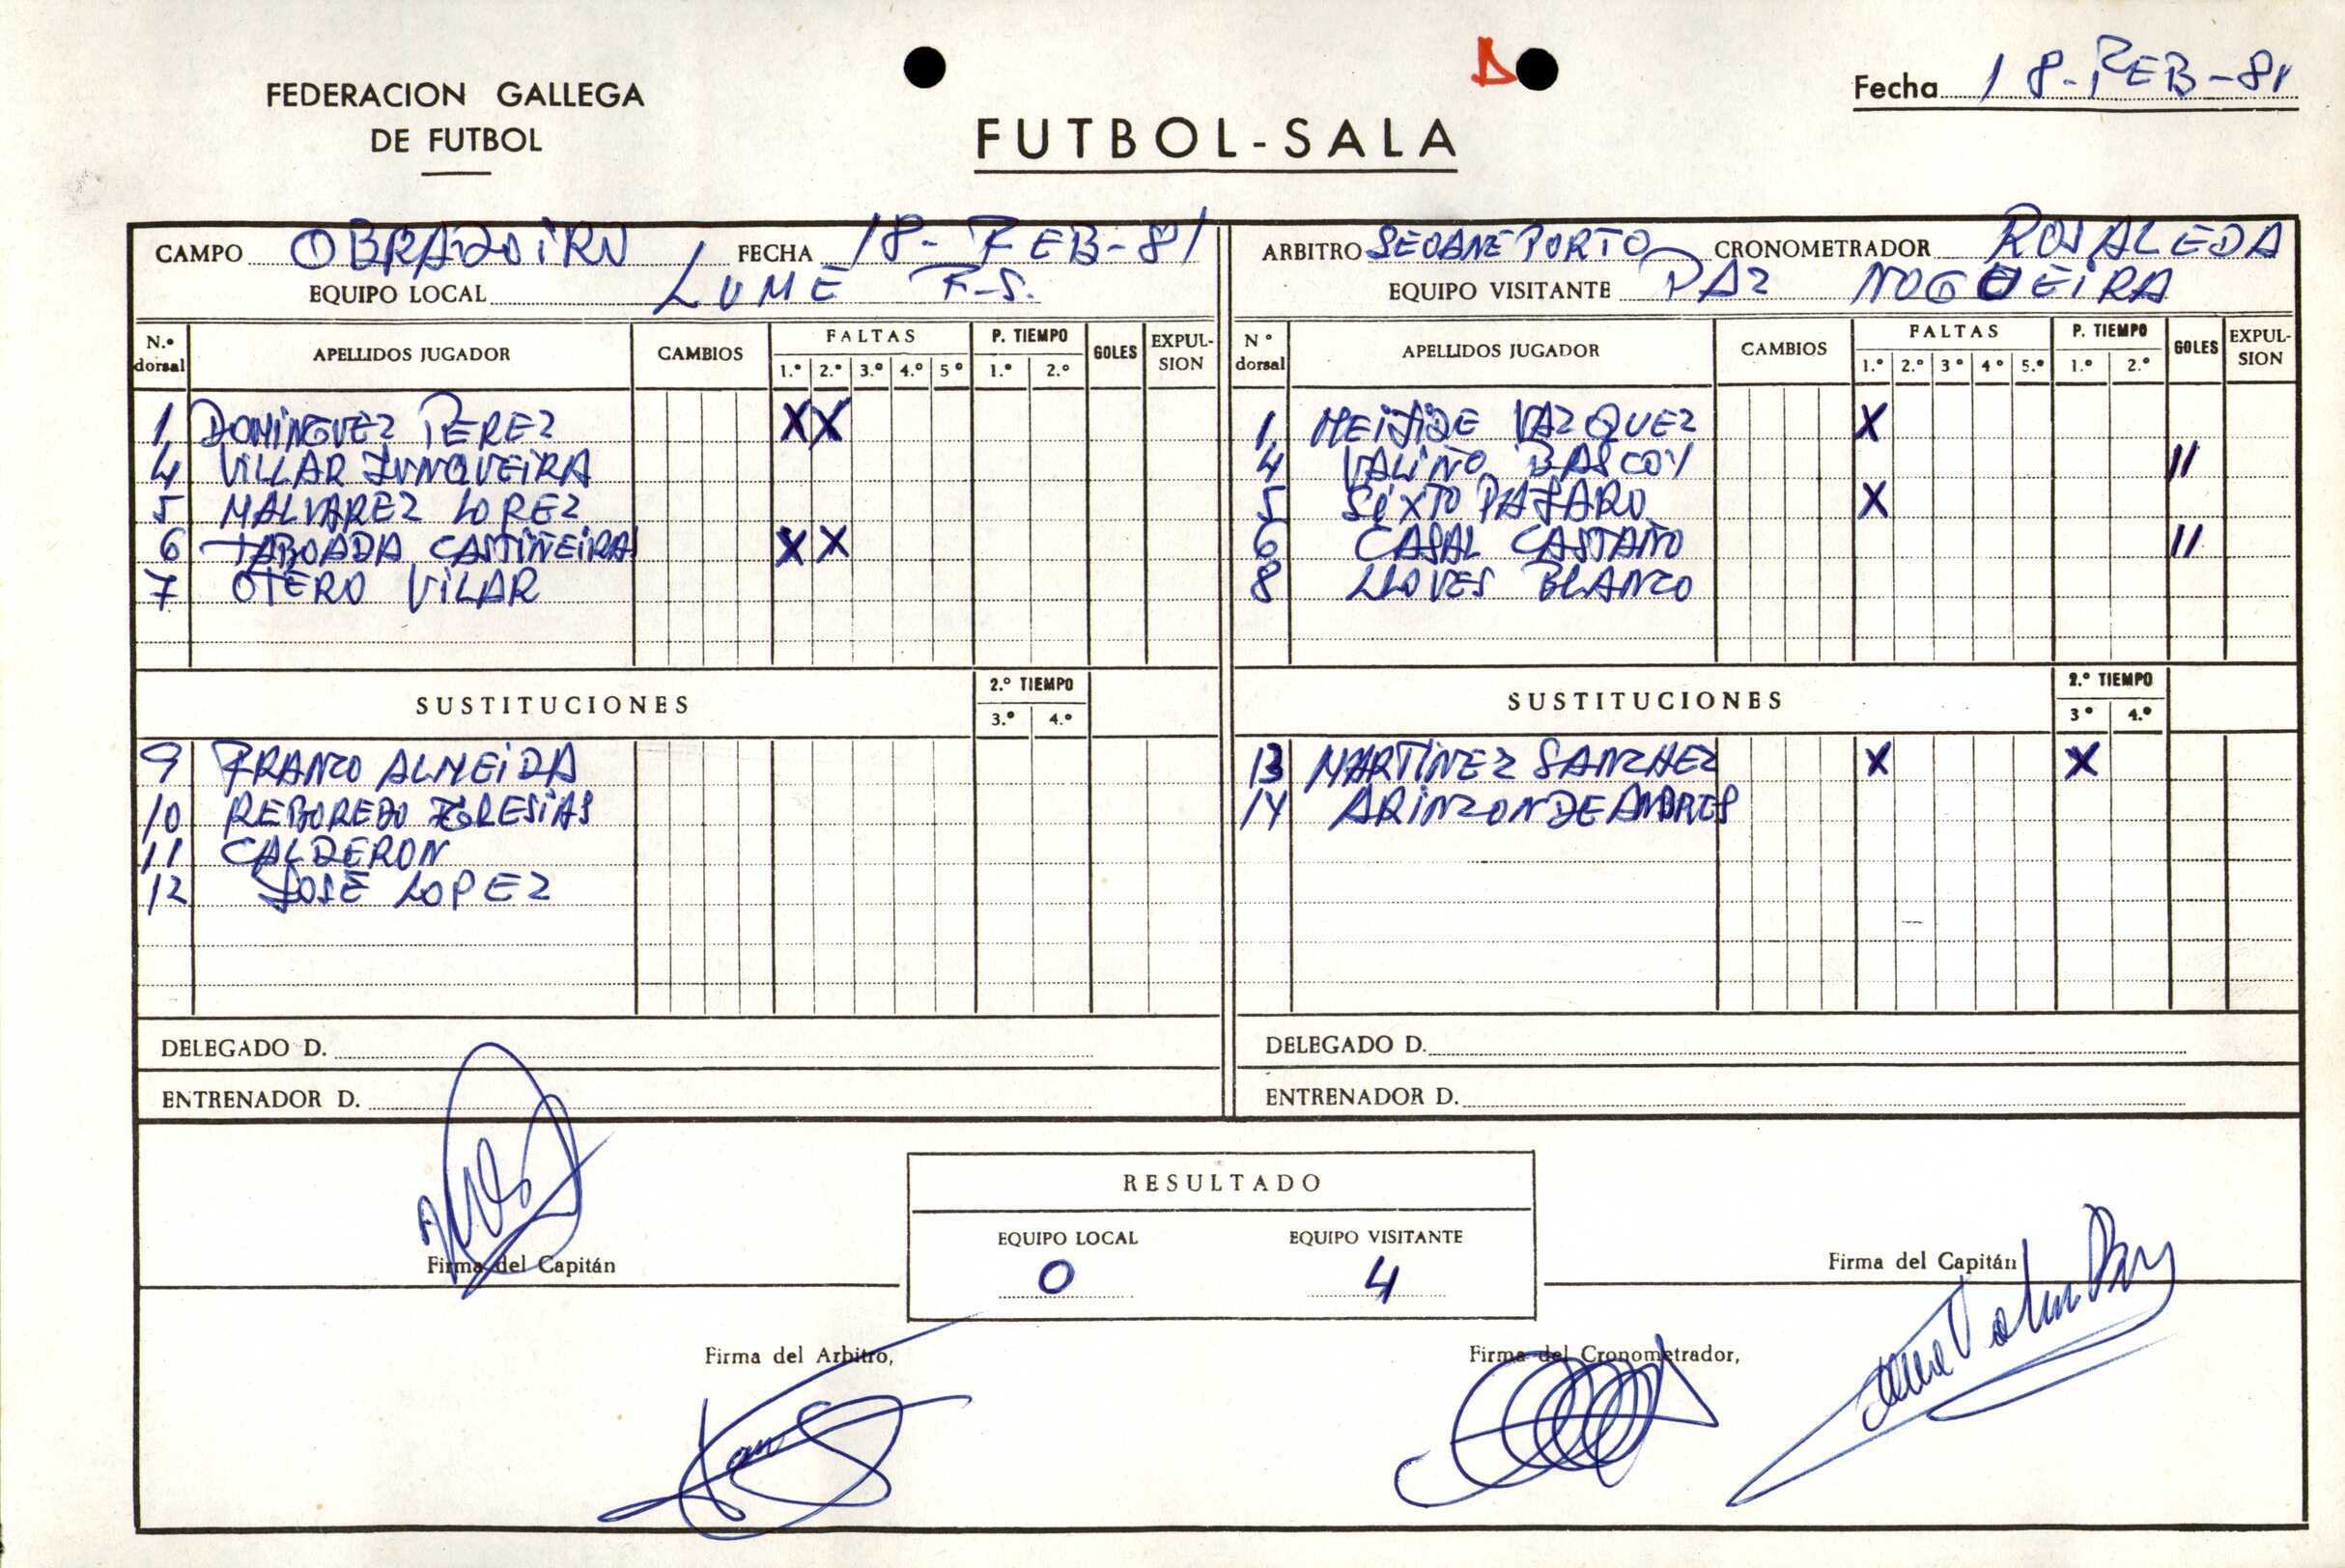 FEDERACION GALLEGA
DE FUTBOL
D
FUTBOL-SALA
Fecha 18-FEB-81
CAMPO OBRADOIRO FECHA 18-FEB-81
EQUIPO LOCAL LUME F-S.
ARBITRO SEOANE PORTO CRONOMETRADOR ROSALEDA
EQUIPO VISITANTE PAZ NOGUEIRA
N.º dorsal APELLIDOS JUGADOR CAMBIOS FALTAS 1.º 2.º 3.º 4.º 5º P. TIEMPO 1.º 2.º GOLES EXPUL-SION
1 DOMINGUEZ PEREZ X X
4 VILLAR JUNQUEIRA
5 MALVAREZ LOPEZ
6 TABOADA CASTIÑEIRAS X X
7 OTERO VILAR
SUSTITUCIONES 2.º TIEMPO 3.º 4.º
9 FRANCO ALMEIDA
10 REBOREDO IGLESIAS
11 CALDERON
12 JOSE LOPEZ
DELEGADO D.
ENTRENADOR D.
Nº dorsal APELLIDOS JUGADOR CAMBIOS FALTAS 1.º 2.º 3º 4º 5.º P. TIEMPO 1.º 2.º GOLES EXPUL-SION
1 MEIJIDE VAZQUEZ X
4 VALIÑO BASCOY II
5 SEXTO PAJARO X
6 CASAL CASTAÑO II
8 LLOVES BLANCO
SUSTITUCIONES 2.º TIEMPO 3º 4.º
13 MARTINEZ SANCHEZ X X
14 ARINZON DE ANDRES
DELEGADO D.
ENTRENADOR D.
RESULTADO
EQUIPO LOCAL EQUIPO VISITANTE
0 4
Firma del Capitán
Firma del Capitán
Firma del Arbitro,
Firma del Cronometrador,